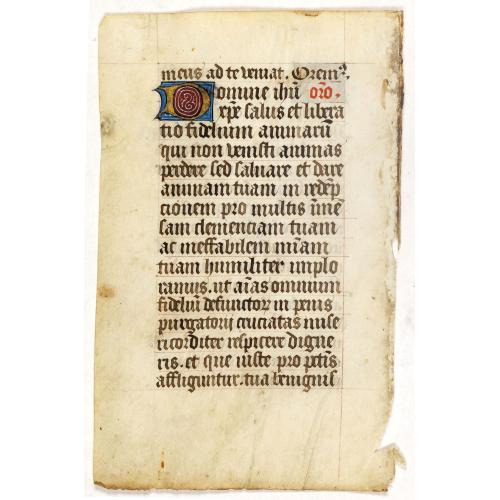 meus ad te veniat. Orem⁹.
Domine ihū oro.
xp̄e salus et libera
tio fidelium animarū
qui non venisti animas
perdere sed salvare et dare
animam tuam in redēp
cionem pro multis īmē
sam clemenciam tuam
ac ineffabilem m̄iam
tuam humiliter implo
ramus. ut aīas omnium
fideliū defunctor in penis
purgatorij cruciatas mise
ricorditer respicere digne
ris. et que iuste pro pctīs
affliguntur. tua benignis